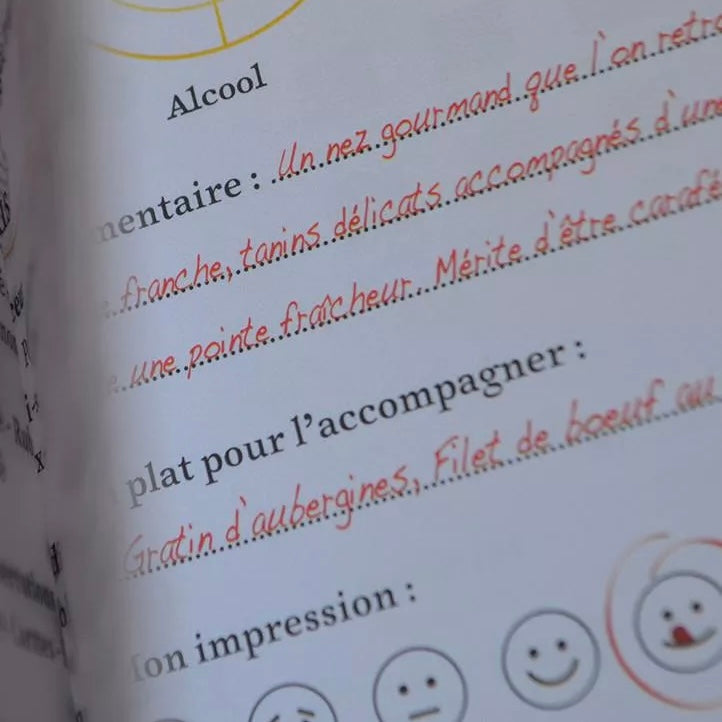 Alcool
mentaire : Un nez gourmand que l'on retro
franche, tanins délicats accompagnés d'une
une pointe fraîcheur. Mérite d'être carafé
plat pour l'accompagner :
Gratin d'aubergines, Filet de boeuf au
Mon impression :